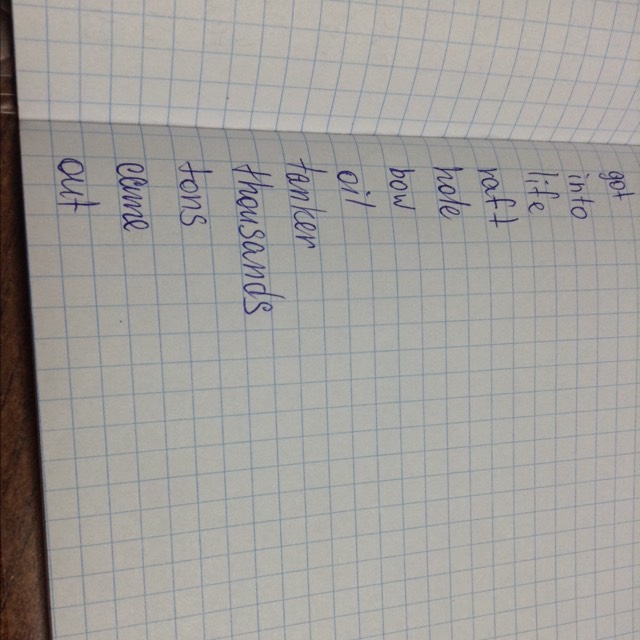 got
into
life
raft
hole
bow
oil
tanker
thousands
tons
came
out